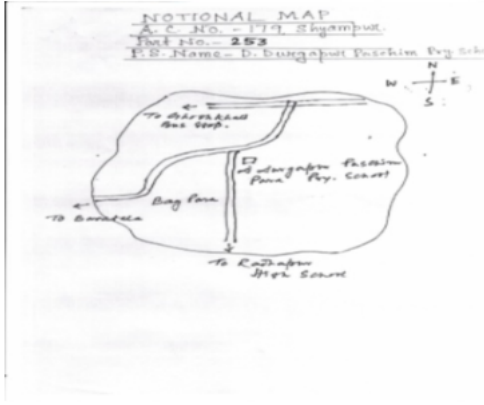 NOTIONAL MAP
A. C. No. - 179 Shyampur.
Part No. - 253
P.S. Name - D. Durgapur Paschim Pry. Scho
N
W E
S
To
Bus Stop.
Durgapur Paschim
Para Pry. School
Bag Para
To
To Radhapur
High School